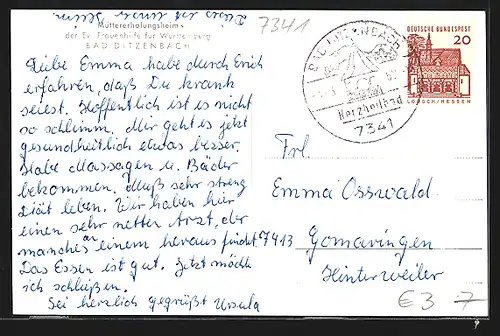 7341
Müttererholungsheim
der Ev. Frauenhilfe für Württemberg
BAD DITZENBACH
Liebe Emma habe durch Erich
erfahren, daß Du krank
seiest. Hoffentlich ist es nicht
so schlimm. Mir geht es jetzt
gesundheitlich etwas besser.
Habe Massagen u. Bäder
bekommen. Muß sehr streng
Diät leben. Wir haben hier
einen sehr netten Arzt, der
manches an einem heraus findet.
Das Essen ist gut. Jetzt möchte
ich schließen.
Sei herzlich gegrüßt Ursula
BAD DITZENBACH
Herzheilbad
7341
DEUTSCHE BUNDESPOST
20
LORSCH/HESSEN
Frl.
Emma Osswald
7413 Gomaringen
Hinterweiler
€3 7